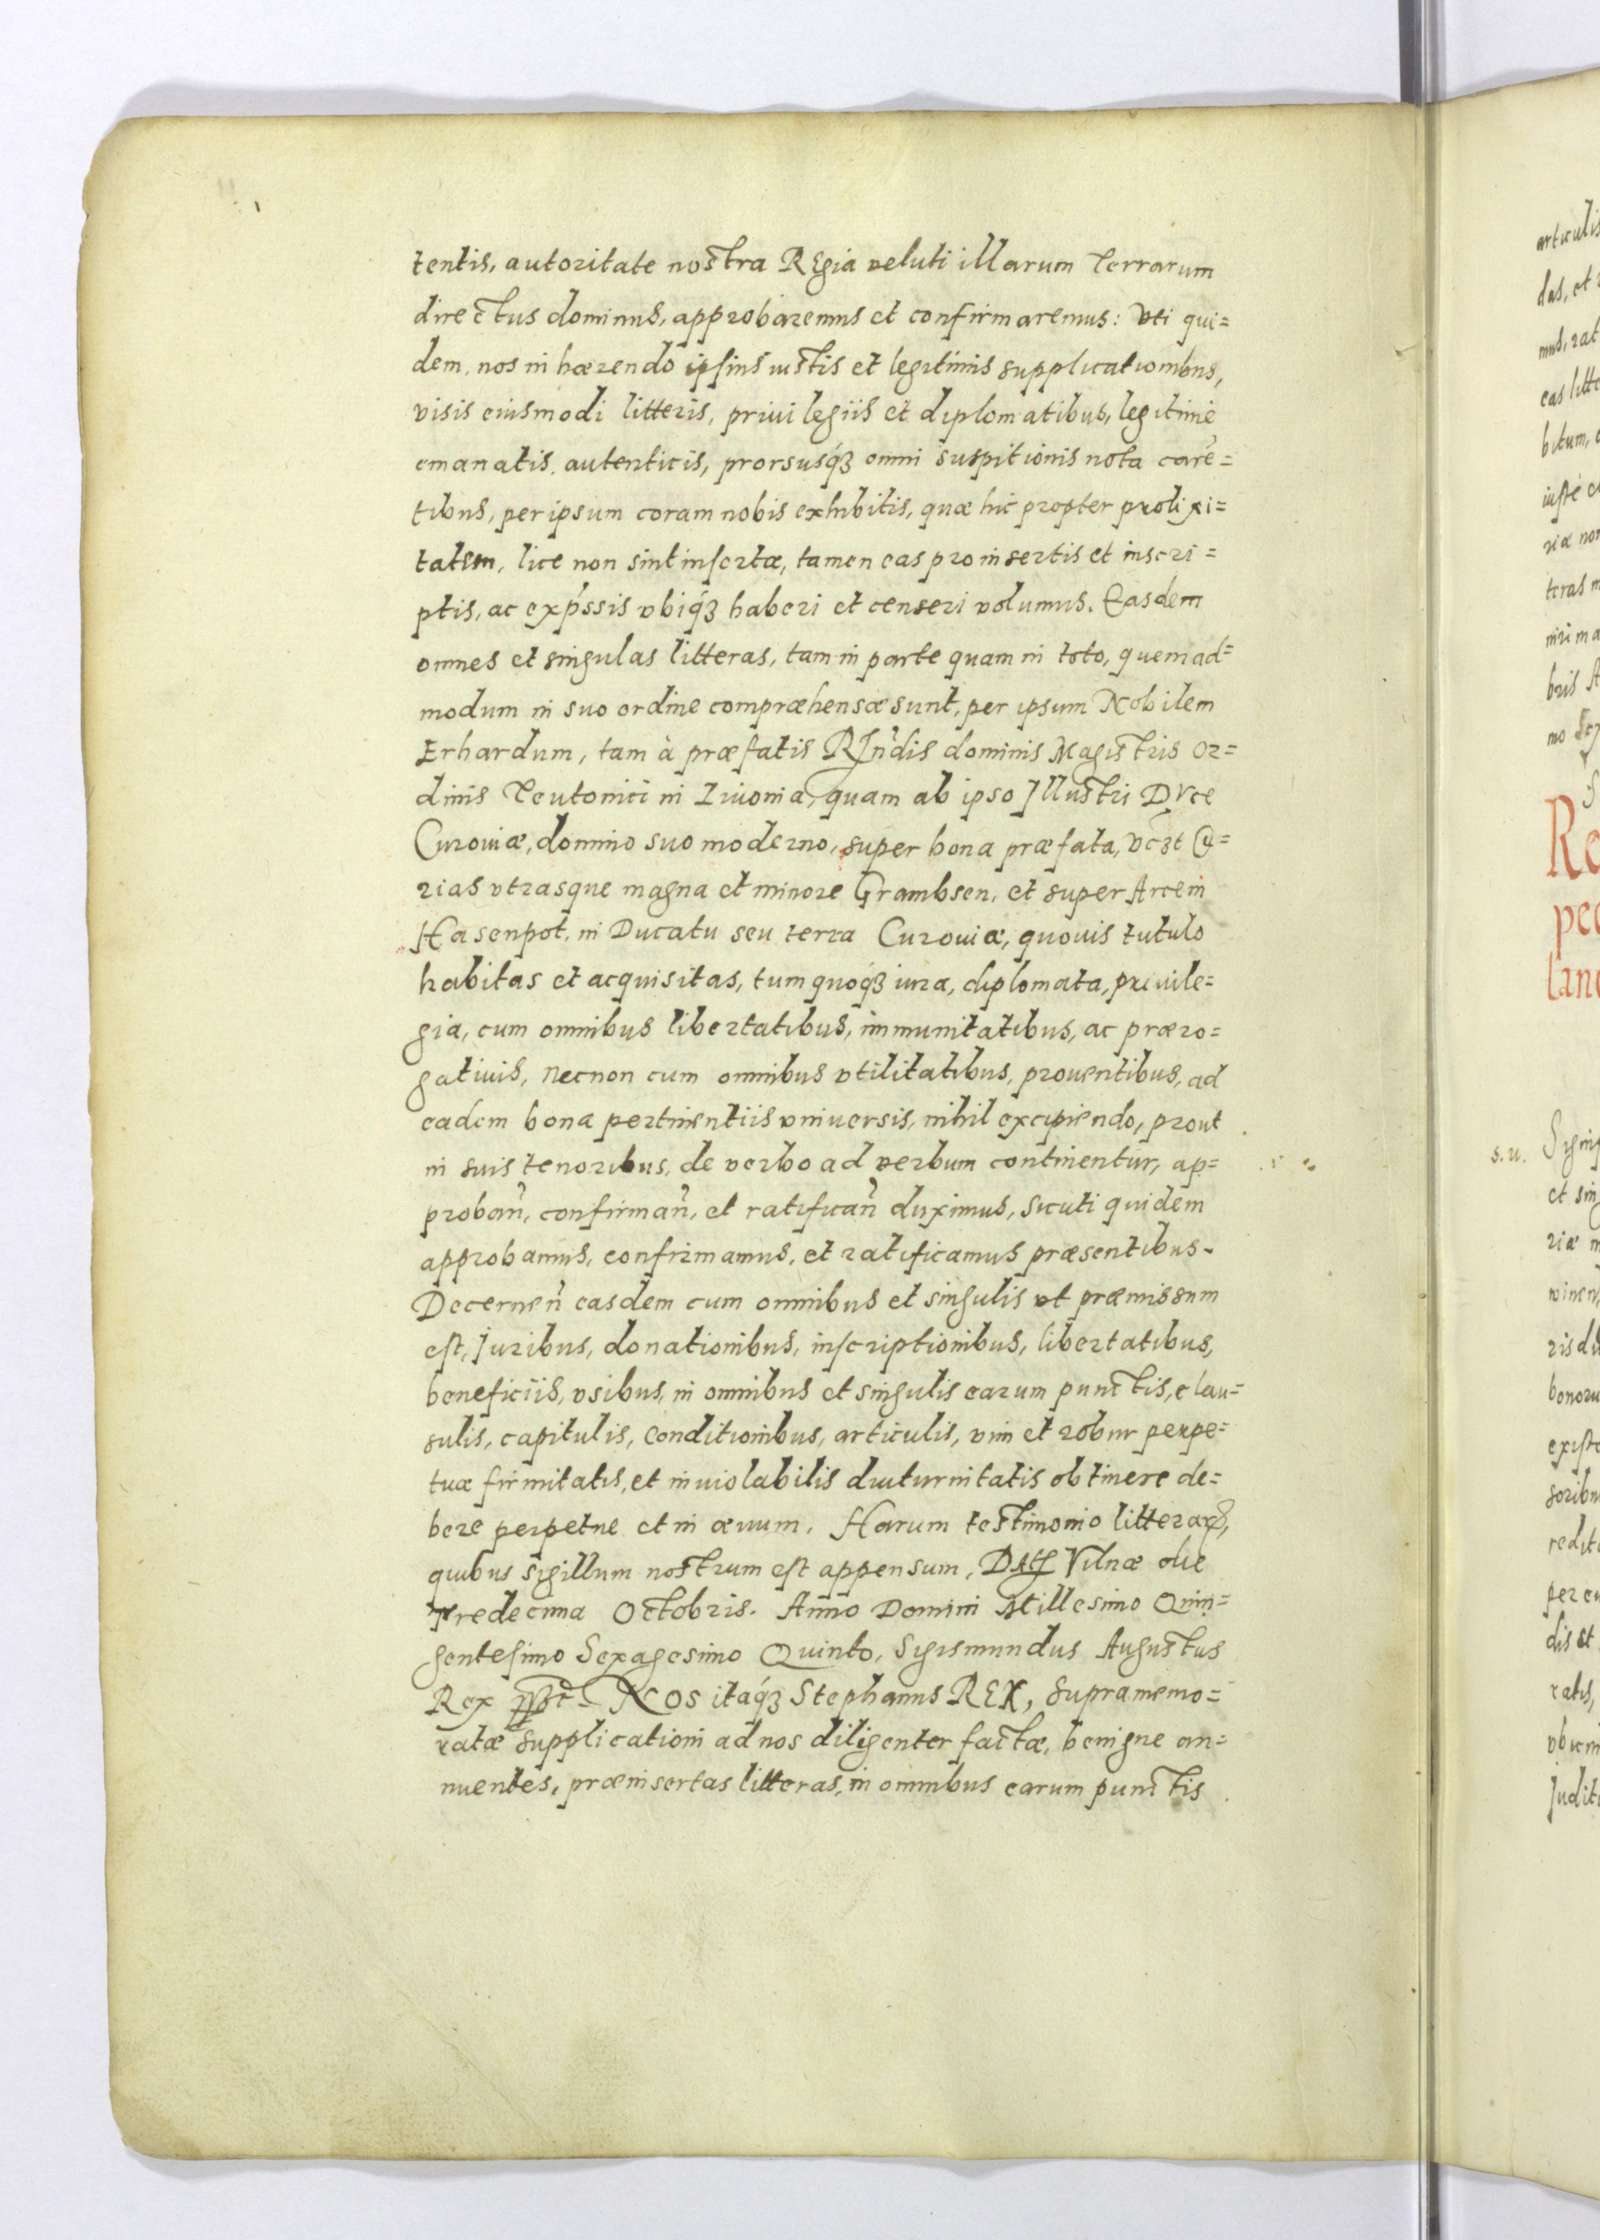 tentis, autoritate nostra Regia veluti illarum terrarum
directus dominus, approbaremus et confirmaremus: Vti qui=
dem, nos in hærendo ipsius iustis et legitimis supplicationibus,
visis eiusmodi litteris, priuilegiis et diplomatibus, legitimè
emanatis, autenticis, prorsusq́ꝫ omni suspitionis nota carē=
tibus, per ipsum coram nobis exhibitis, quæ hic propter prolixi=
tatem, lice non sint insertæ, tamen eas pro insertis et inscri=
ptis, ac exp̃ssis vbiq́ꝫ haberi et censeri volumus. Easdem
omnes et singulas litteras, tam in parte quam in toto, quemad=
modum in suo ordine compræhensæ sunt, per ipsum Nobilem
Erhardum, tam à præfatis RJñdis dominis Magistris Or=
dinis Teutonici in Liuonia, quam ab ipso Jllustri Duce
Curoniæ, domino suo moderno, super bona præfata, vcꝫt Cu=
rias vtrasque magna et minore Grambsen, et super Arcem
Hasenpot, in Ducatu seu terra Curoniæ, quouis tutulo
habitas et acquisitas, tum quoq́ꝫ iura, diplomata, priuile=
gia, cum omnibus libertatibus, immunitatibus, ac præro=
gatiuis, necnon cum omnibus vtilitatibus, prouentibus, ad
eadem bona pertinentiis vniuersis, nihil excipiendo, prout
in suis tenoribus, de verbo ad verbum continentur, ap=
probañ, confirmañ, et ratificañ duximus, sicuti quidem
approbamus, confirmamus, et ratificamus præsentibus.
Decerneñ easdem cum omnibus et singulis vt præmissum
est, Juribus, donationibus, inscriptionibus, libertatibus,
beneficiis, vsibus, in omnibus et singulis earum punctis, clau=
sulis, capitulis, conditionibus, articulis, vim et robur perpe=
tuæ firmitatis, et inuiolabilis diuturnitatis obtinere de=
bere perpetue et in æuum. Harum testimonio litterarꝝ,
quibus sigillum nostrum est appensum, Datꝭ Vilnæ die
Tredecima Octobris. Anno Domini Millesimo Quin=
gentesimo Sexagesimo Quinto, Sigismundus Augustus
Rex ꝑꝑꝫt. NOS itaq́ꝫ Stephanus REX, supramemo=
ratæ supplicationi ad nos diligenter factæ, benigne an=
nuentes, præinsertas litteras, in omnibus earum punctis
articulis
das, et
mus, rat
eas litte
bitum,
iuste
riæ non
teras
bris A
Re
pe
lan
s. u.
et sin
riæ
ris du
bonoru
existe
soribu
redit
per eu
dis et
ratis,
Judit